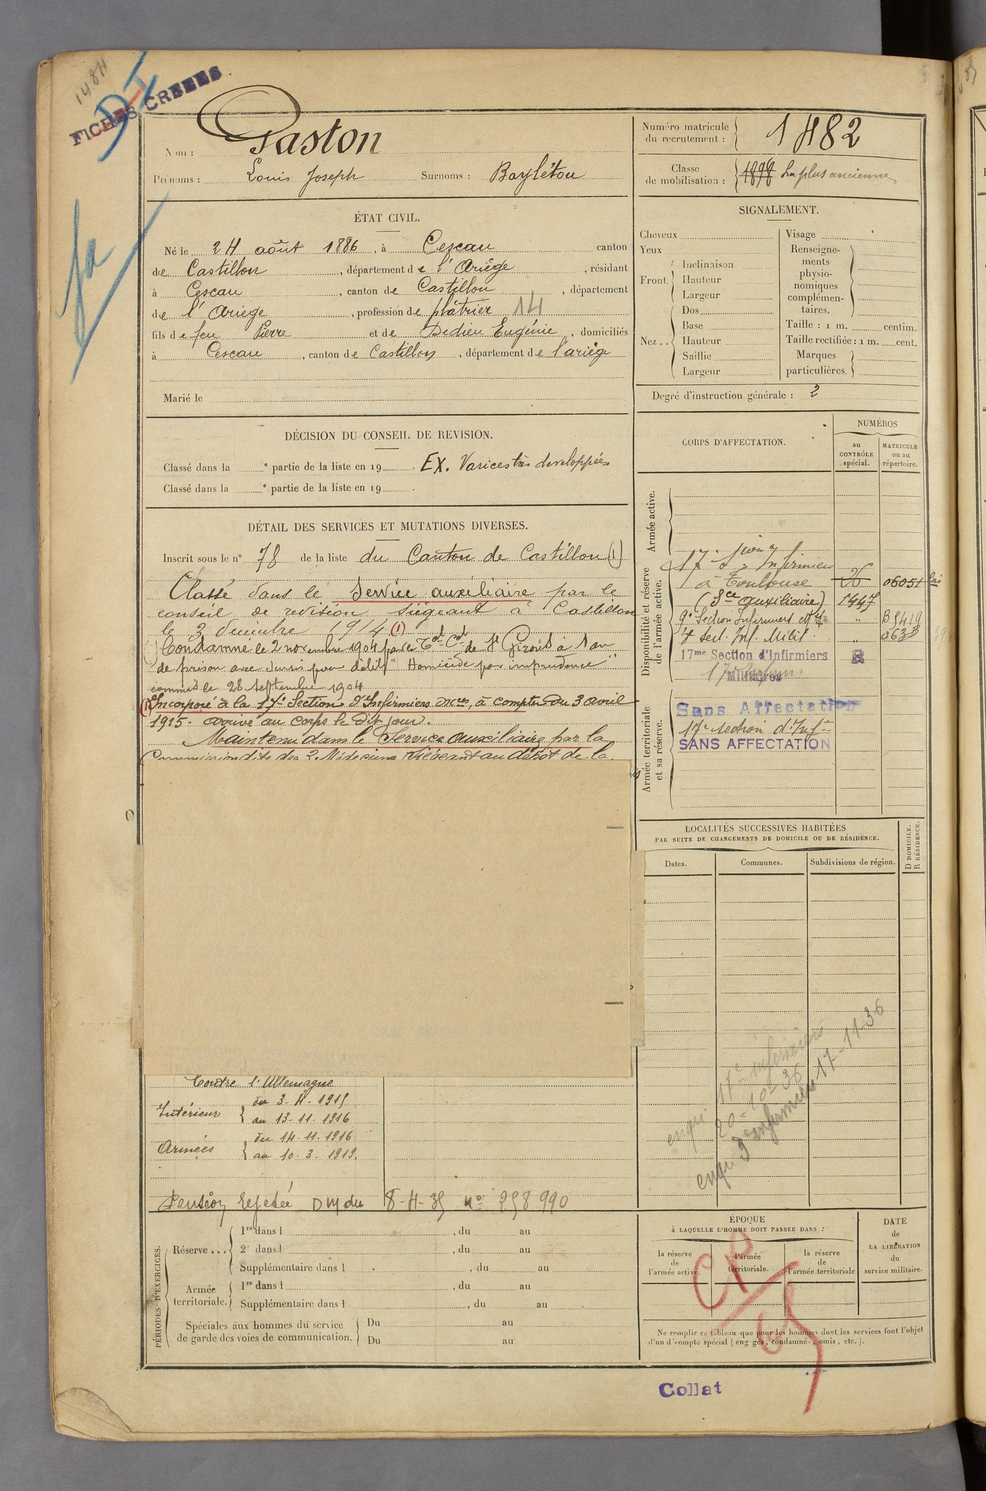 1484
D I
FICHES CREEES
Nom : Gaston
Prénoms : Louis Joseph Surnoms : Baylétou
Numéro matricule du recrutement : 1482
Classe de mobilisation : 1898 La plus ancienne
ÉTAT CIVIL.
Né le 24 août 1886, à Cescau canton
de Castillon, département de l'Ariège, résidant
à Cescau, canton de Castillon, département
de l'Ariège, profession de plâtrier 14
fils de feu Pierre et de Dedieu Eugénie, domiciliés
à Cescau, canton de Castillon, département de l'ariège
Marié le
SIGNALEMENT.
Cheveux
Yeux
Front. Inclinaison
Hauteur
Largeur
Nez.. Dos
Base
Hauteur
Saillie
Largeur
Visage
Renseignements physionomiques complémentaires.
Taille : 1 m. centim.
Taille rectifiée : 1 m. cent.
Marques particulières.
Degré d'instruction générale : 2
DÉCISION DU CONSEIL DE REVISION.
Classé dans la e partie de la liste en 19 . EX. Varices très developpées
Classé dans la e partie de la liste en 19 .
DÉTAIL DES SERVICES ET MUTATIONS DIVERSES.
Inscrit sous le n° 78 de la liste du Canton de Castillon (1)
Classé dans le Service auxiliaire par le
conseil de revision siégeant à Castillon
le 3 decembre 1914 (1)
Condamné le 2 novembre 1904 par le de St Girons à 1 an
de prison avec sursis pour délit "Homicide par imprudence"
commis le 28 septembre 1904
(1) Incorporé à la 17e Section d'Infirmiers mres, à compter du 3 avril
1915. arrivé au corps le dit jour.
Maintenu dans le Service auxiliaire par la
Commission dite des 3 Médecins siégeant au dépôt de la
Contre l'Allemagne
Intérieur du 3.4.1915
au 13.11.1916
Armées du 14.11.1916
au 10.3.1919.
Pension rejetée DM du 8-4-35 n° 258 990
CORPS D'AFFECTATION.
NUMÉROS
au CONTRÔLE spécial.
MATRICULE ou au répertoire.
Armée active.
Disponibilité et réserve de l'armée active.
17e Son Infirmiers
à Toulouse 26 06051 bis
(Sce auxiliaire) 1447
9e Section Infirmiers B5419
17me Section d'Infirmiers Militaires
Armée territoriale et sa réserve.
Sans Affectation
17e section d'Inf
SANS AFFECTATION
LOCALITÉS SUCCESSIVES HABITÉES
PAR SUITE DE CHANGEMENTS DE DOMICILE OU DE RÉSIDENCE.
Dates.
Communes.
Subdivisions de région.
D DOMICILE.
R RÉSIDENCE.
enqu 17e infirmiers
20-10-36
enqu 9e infirmiers 17-11-36
PÉRIODES D'EXERCICES.
Réserve... 1re dans l , du au
2e dans l , du au
Supplémentaire dans l , du au
Armée territoriale. 1re dans l , du au
Supplémentaire dans l , du au
Spéciales aux hommes du service de garde des voies de communication. Du au
Du au
ÉPOQUE
À LAQUELLE L'HOMME DOIT PASSER DANS :
la réserve de l'armée active.
l'armée territoriale.
la réserve de l'armée territoriale
DATE de LA LIBÉRATION du service militaire.
Ne remplir ce tableau que pour les hommes dont les services font l'objet
d'un décompte spécial (engagés, condamnés, omis, etc.).
CP
Collat